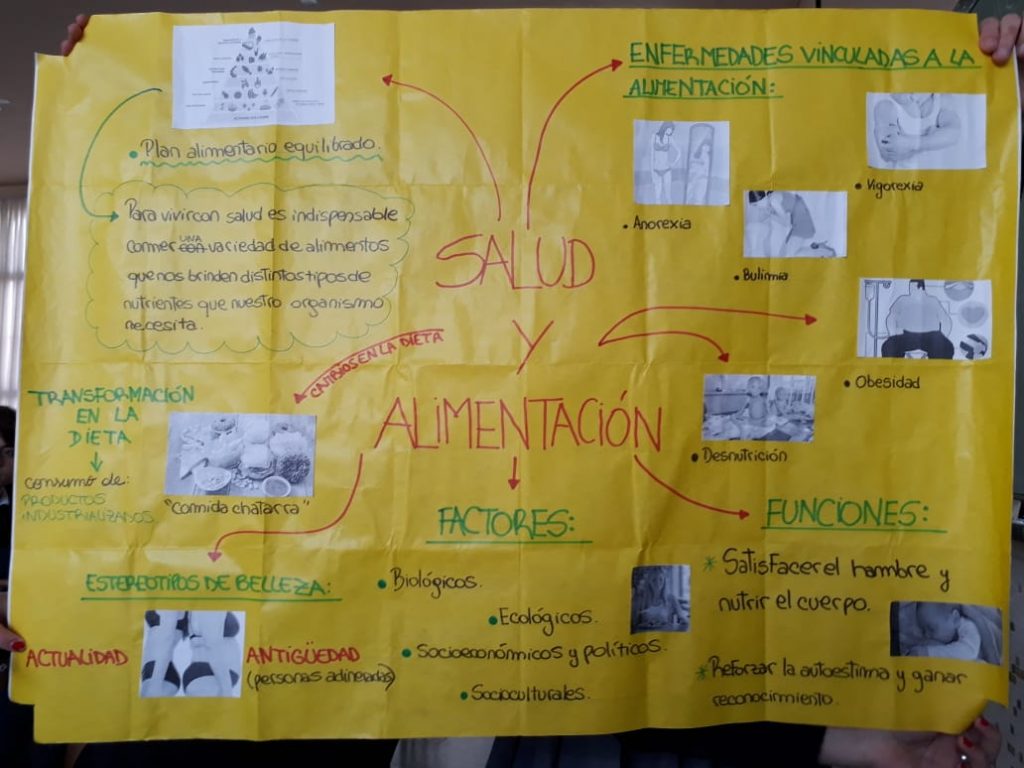 • Plan alimentario equilibrado.
Para vivir con salud es indispensable
comer UNA variedad de alimentos
que nos brinden distintos tipos de
nutrientes que nuestro organismo
necesita.
SALUD
Y
ALIMENTACIÓN
ENFERMEDADES VINCULADAS A LA
ALIMENTACIÓN:
• Anorexia
• Vigorexia
• Bulimia
• Obesidad
• Desnutrición
CAMBIOS EN LA DIETA
TRANSFORMACIÓN
EN LA
DIETA
consumo de:
PRODUCTOS
INDUSTRIALIZADOS.
"Comida chatarra"
ESTEREOTIPOS DE BELLEZA:
ACTUALIDAD
ANTIGÜEDAD
(personas adineradas)
FACTORES:
• Biológicos.
• Ecológicos.
• Socioeconómicos y políticos.
• Socioculturales.
FUNCIONES:
* Satisfacer el hambre y
nutrir el cuerpo.
* Reforzar la autoestima y ganar
reconocimiento.